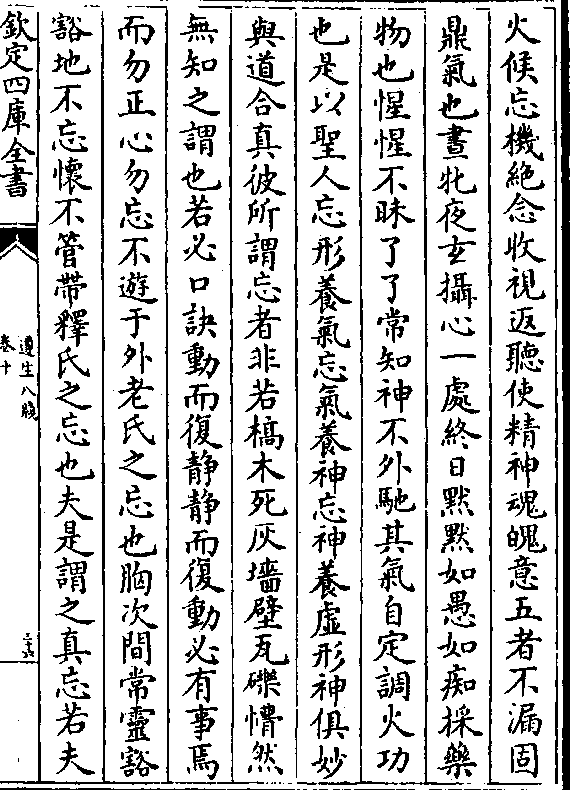 火候忘機絶念收視返聽使精神魂魄意五者不漏固
鼎氣也晝牝夜玄攝心一處終日黙黙如愚如痴採藥
物也惺惺不昧了了常知神不外馳其氣自定調火功
也是以聖人忘形養氣忘氣養神忘神養虛形神俱妙
與道合真彼所謂忘者非若槁木死灰墻壁瓦礫懵然
無知之謂也若必口訣動而復静静而復動必有事焉
而勿正心勿忘不遊于外老氏之忘也胸次間常靈豁
豁地不忘懷不管帶釋氏之忘也夫是謂之真忘若夫
欽定四庫全書
遵生八牋
卷十